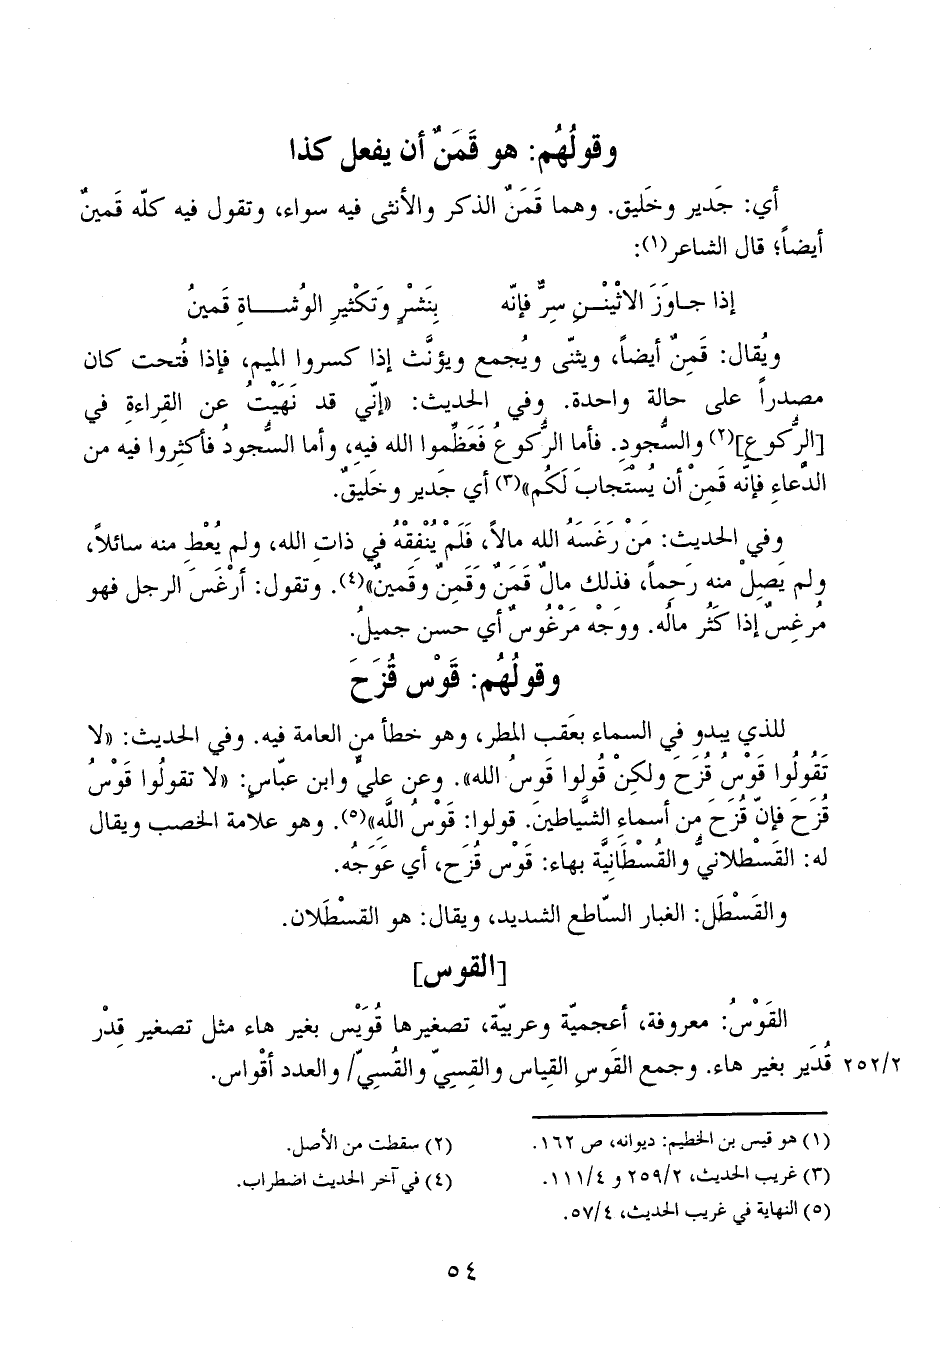 وقولُهُم: هو قَمَنٌ أن يفعل كذا
أي: جَدير وخَليق. وهما قَمَنٌ الذكر والأنثى فيه سواء، وتقول فيه كلّه قَمينٌ
أيضاً؛ قال الشاعر(١):
إذا جـاوَزَ الاثْنْـنِ سِرٌّ فإنّه بِنَشْرٍ وَتَكْثيرِ الوُشـــاةِ قَمينُ
ويُقال: قَمِنٌ أيضاً، ويثنّى ويُجمع ويؤنَّث إذا كسروا الميم، فإذا فُتحت كان
مصدراً على حالة واحدة. وفي الحديث: «إنّي قد نَهَيْتُ عن القراءةِ في
[الرُّكوعِ](٢) والسُّجودِ. فأما الرُّكوعُ فَعَظِّموا الله فيهِ، وأما السُّجودُ فأكثِروا فيه من
الدُّعاءِ فإنّه قَمِنْ أن يُسْتَجابَ لَكُم»(٣) أي جَدير وخَليقٌ.
وفي الحديث: مَنْ رَغَسَهُ الله مالاً، فَلَمْ يُنْفِقْهُ في ذاتِ الله، ولم يُعْطِ منه سائلاً،
ولم يَصِلْ منه رَحِماً، فذلك مالٌ قَمَنٌ وَقَمِنٌ وقَمينٌ»(٤). وتقول: أرْغَسَ الرجل فهو
مُرغِسٌ إذا كَثُر مالُه. ووَجْه مَرْغُوسٌ أي حسن جميلُ.
وقولُهُم: قَوْس قُزَحَ
للذي يبدو في السماء بعَقب المطر، وهو خطأ من العامة فيه. وفي الحديث: «لا
تَقُولُوا قَوْسُ قُزَحَ ولكِنْ قُولوا قَوسُ الله». وعن عليٍّ وابن عبّاسٍ: «لا تقولُوا قَوْسُ
قُزَحَ فإنّ قُزَحَ مِن أسماءِ الشَّياطينَ. قولوا: قَوْسُ اللَّهِ»(٥). وهو علامة الخصب ويقال
له: القَسْطلانيُّ والقُسْطَانِيَّة بهاء: قَوْس قُزَح، أي عَوَجُه.
والقَسْطَل: الغبار السّاطع الشديد، ويقال: هو القَسْطَلان.
[القوس]
القَوْسُ: معروفة، أعجميّة وعربيّة، تصغيرها قُوَيْس بغير هاء مثل تصغير قِدْر
قُدَير بغير هاء. وجمع القَوسِ القِياس والقِسِيّ والقُسِيّ/ والعدد أقْواس. ٢٥٢/٢
(١) هو قيس بن الخطيم: ديوانه، ص ١٦٢. (٢) سقطت من الأصل.
(٣) غريب الحديث، ٢٥٩/٢ و ١١١/٤. (٤) في آخر الحديث اضطراب.
(٥) النهاية في غريب الحديث، ٥٧/٤.
٥٤